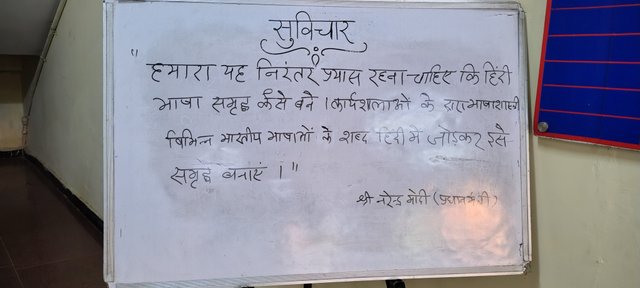 सुविचार
" हमारा यह निरंतर प्रयास रहना चाहिए कि हिंदी
भाषा समृद्ध कैसे बने । कार्यशालाओं के द्वारा भाषाशास्त्री
विभिन्न भारतीय भाषाओं के शब्द हिंदी में जोड़कर इसे
समृद्ध बनाएं । "
श्री नरेन्द्र मोदी (प्रधानमंत्री)